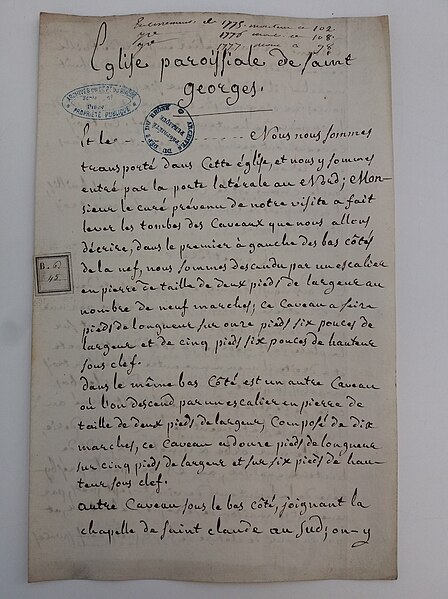 Enterremens de 1775 montent a 102
1776 mont. a 108.
1777 a 98
Eglise paroissiale de Saint
georges.
ARCHIVES DU DEPT DU RHONE
PROPRIÉTÉ PUBLIQUE
Et le Nous nous sommes
transporté dans Cette église, et nous y sommes
entré par la porte latérale au Nord; Mon-
sieur le curé prévenu de notre visite a fait
lever les tombes des Caveaux que nous allons
décrire, dans le premier à gauche des bas côtés
de la nef, nous sommes descendu par un escalier
en pierre de taille de deux pieds de largeur au
nombre de neuf marches; ce Caveau a seize
pieds de longueur sur onze pieds six pouces de
largeur et de cinq pieds six pouces de hauteur
sous clef.
dans le même bas Côté est un autre Caveau
où l'on descend par un escalier en pierre de
taille de deux pieds de largeur, Composé de dix
marches, ce Caveau en douze pieds de longueur
sur cinq pieds de largeur et sur six pieds de hau-
teur sous clef.
autre Caveau sous le bas côté, joignant la
chapelle de saint claude au sud; on-y
45.